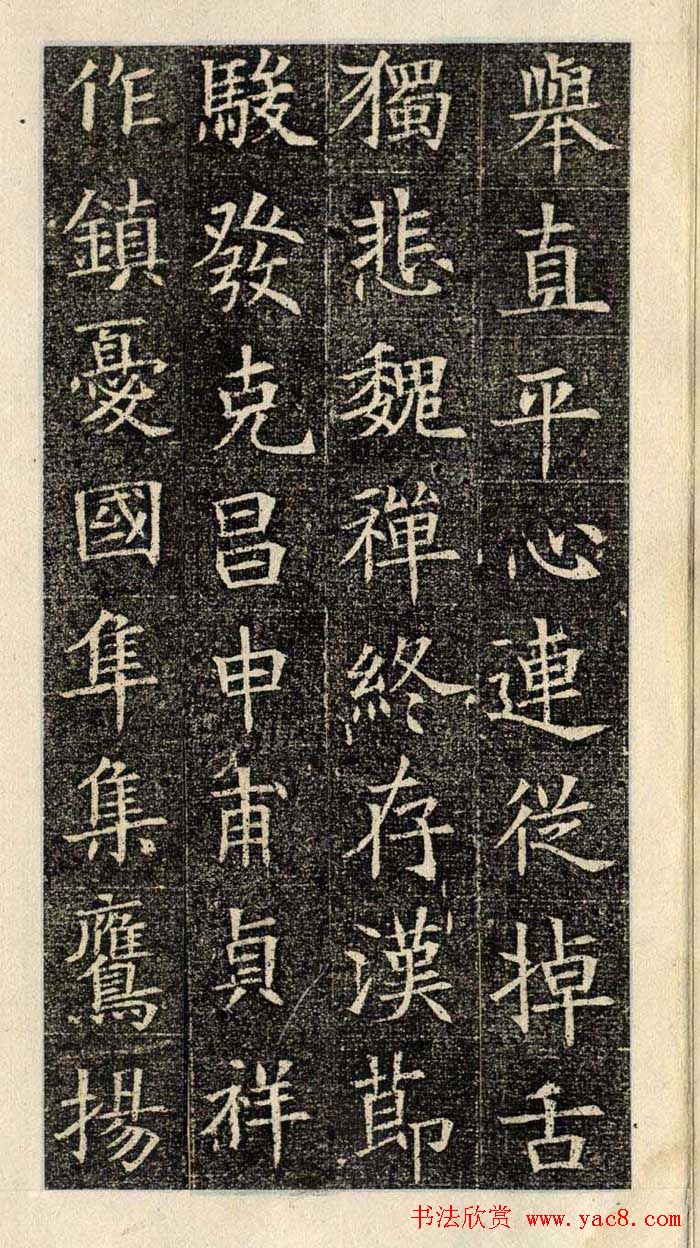 舉直平心連從掉舌
獨悲魏禪終存漢節
駿發克昌申甫貞祥
作鎮憂國隼集鷹揚
书法欣赏 www.yac8.com